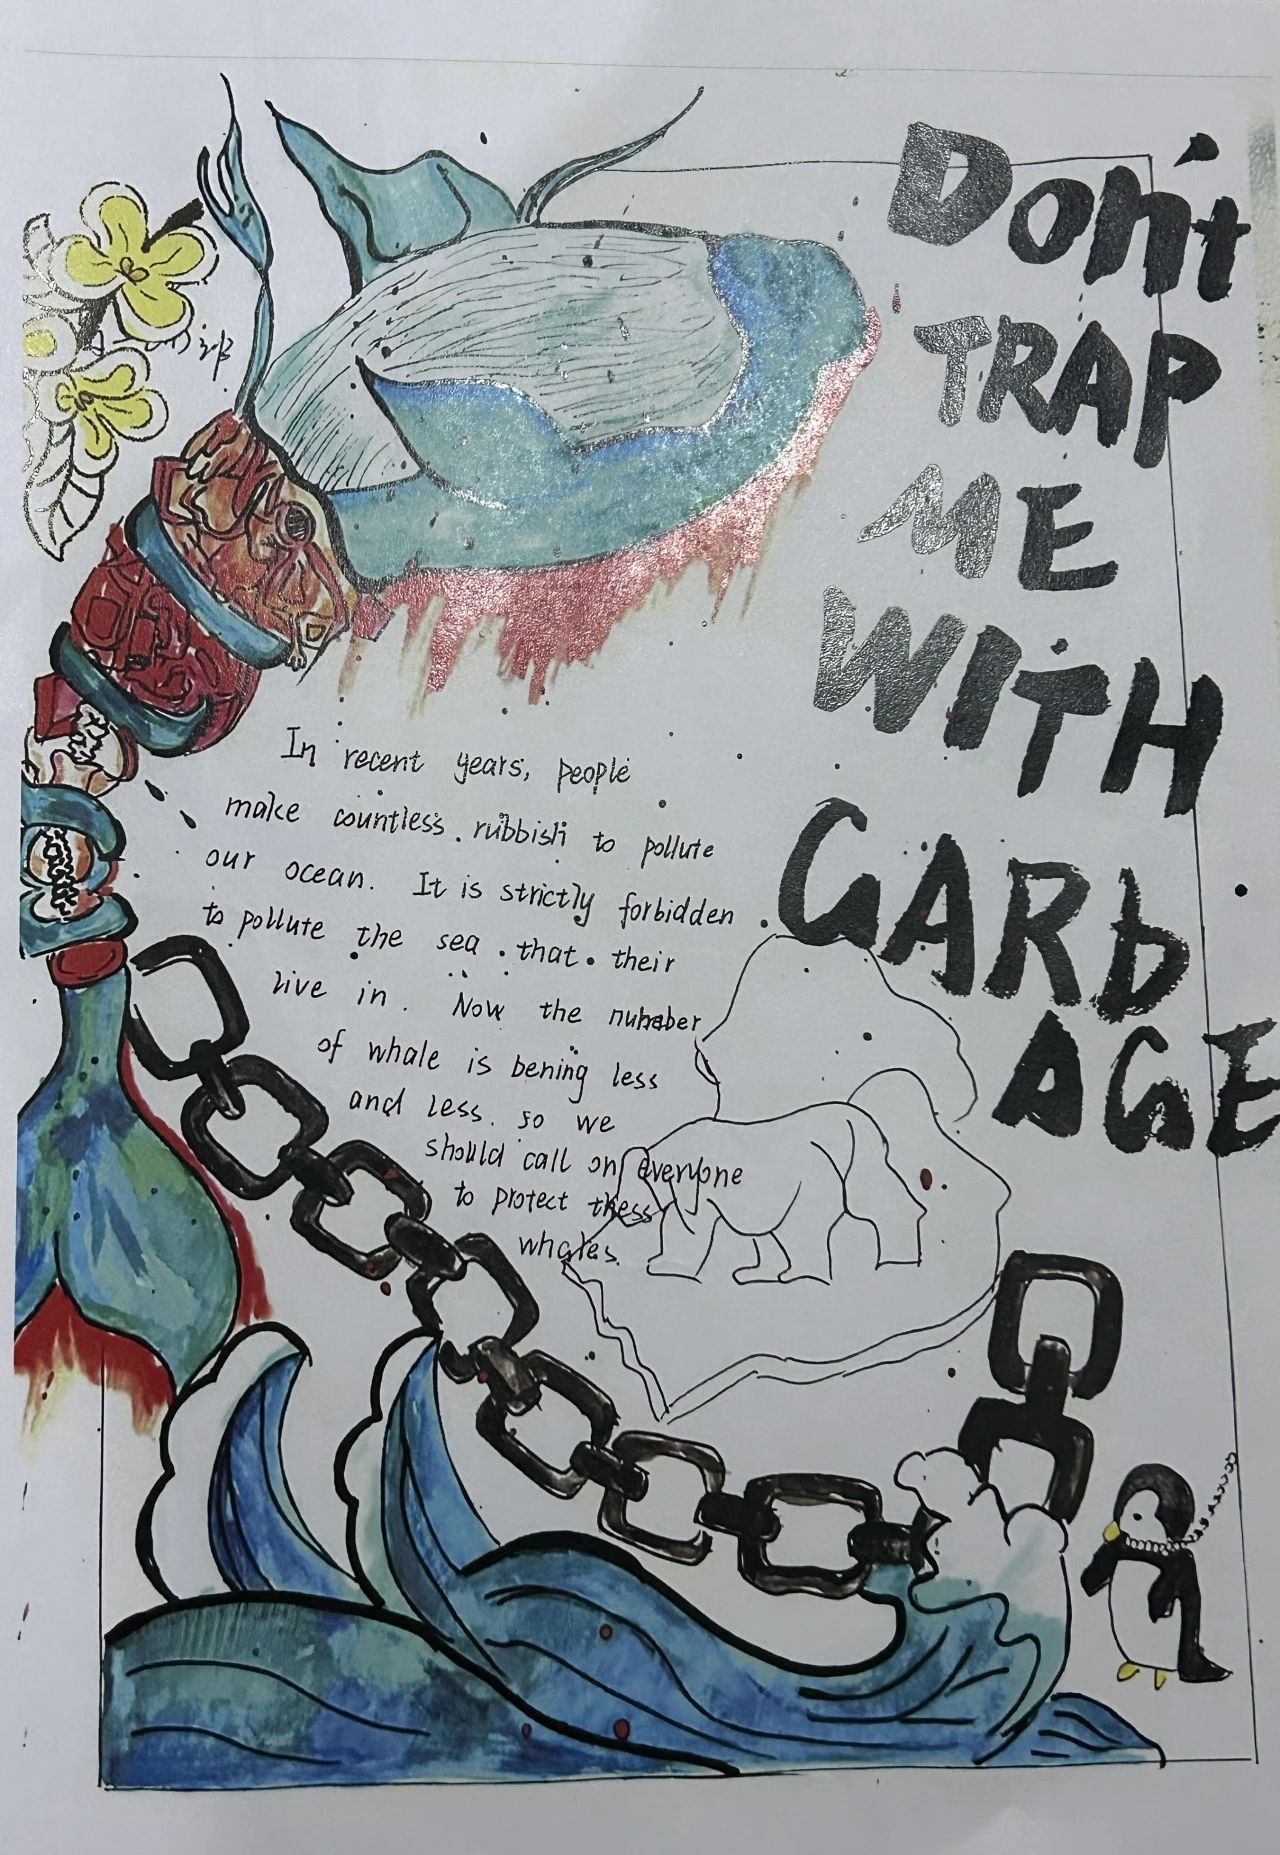 Don't
TRAP
ME
WITH
GARb
AGE
In recent years, people
make countless rubbish to pollute
our ocean. It is strictly forbidden
to pollute the sea that their
live in. Now the number
of whale is bening less
and less. so we
should call on everyone
to protect thess
whales.